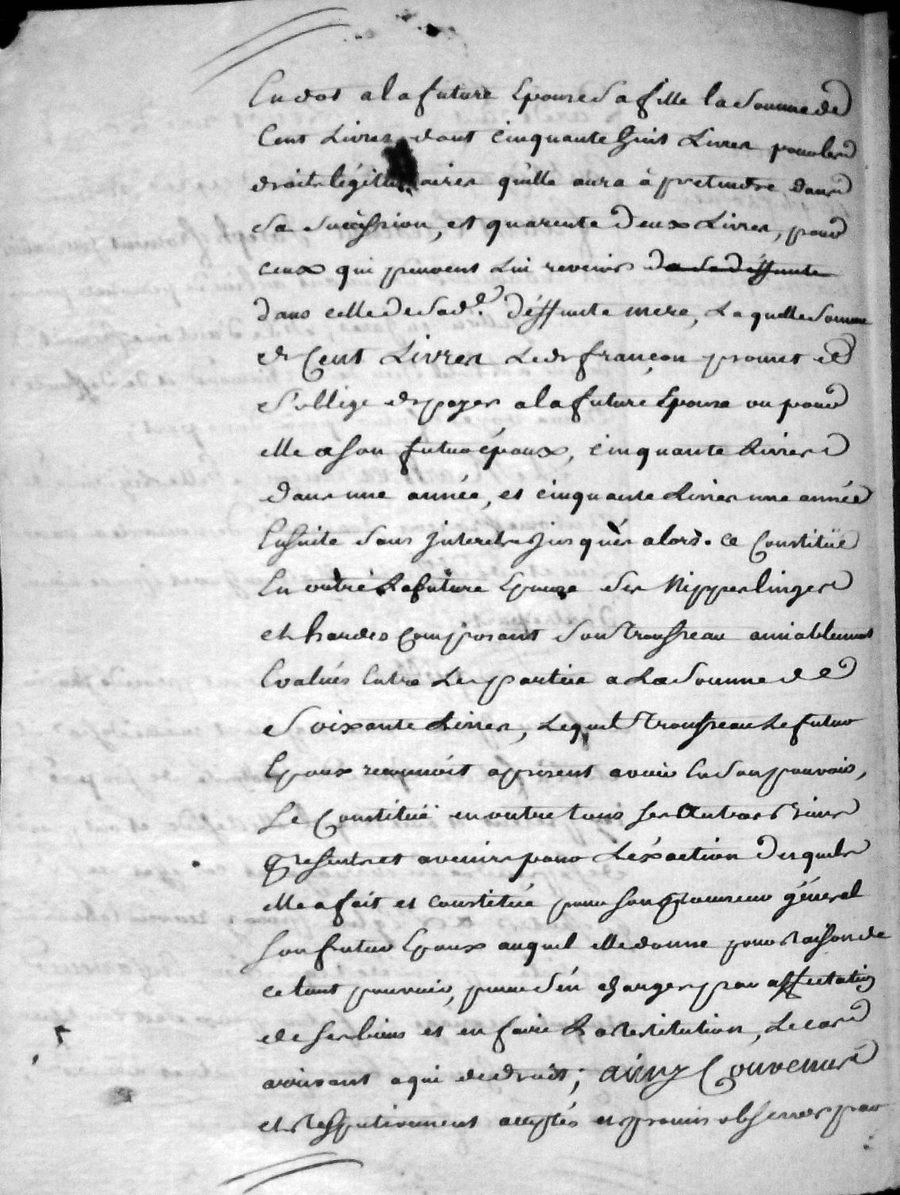 En dot a la future Epouse Sa fille la Somme de
Cent Livres dont cinquante huit Livres pour les
droits légitimaires qu'elle aura à pretendre dans
Sa Succession, et quarente deux Livres, pour
ceux qui peuvent Lui revenir da Sa déffunte
dans celle de Sad.e déffunte mere, Laquelle Somme
de Cent Livres Led françon promet et
S'oblige de payer a la future Epouse ou pour
elle a Son futur époux, cinquante Livres
dans une année, et cinquante Livres une année
Ensuite Sans Interets jusques alors. ce Constitüe
En outre La future Epouze Ses Nippes linges
et hardes Composant Son trousseau amiablement
Evalués Entre Les parties a La Somme de
Soixante Livres, Lequel trousseau Le futur
Epoux reconnoit apresent avoir En Son pouvoir,
Se Constitüe en outre tous Ses Autres biens
presents et avenir pour L'éxaction desquels
elle a fait et constitué pour Son procureur général
Son futur Epoux auquel elle donne pour raison de
ce tout pouvoir, pour S'en charger par affectation
de Ses biens et en faire La restitution, Le cas
arrivant a qui de droit; ainsy Convenu
et respectivement acceptés et promis observer par